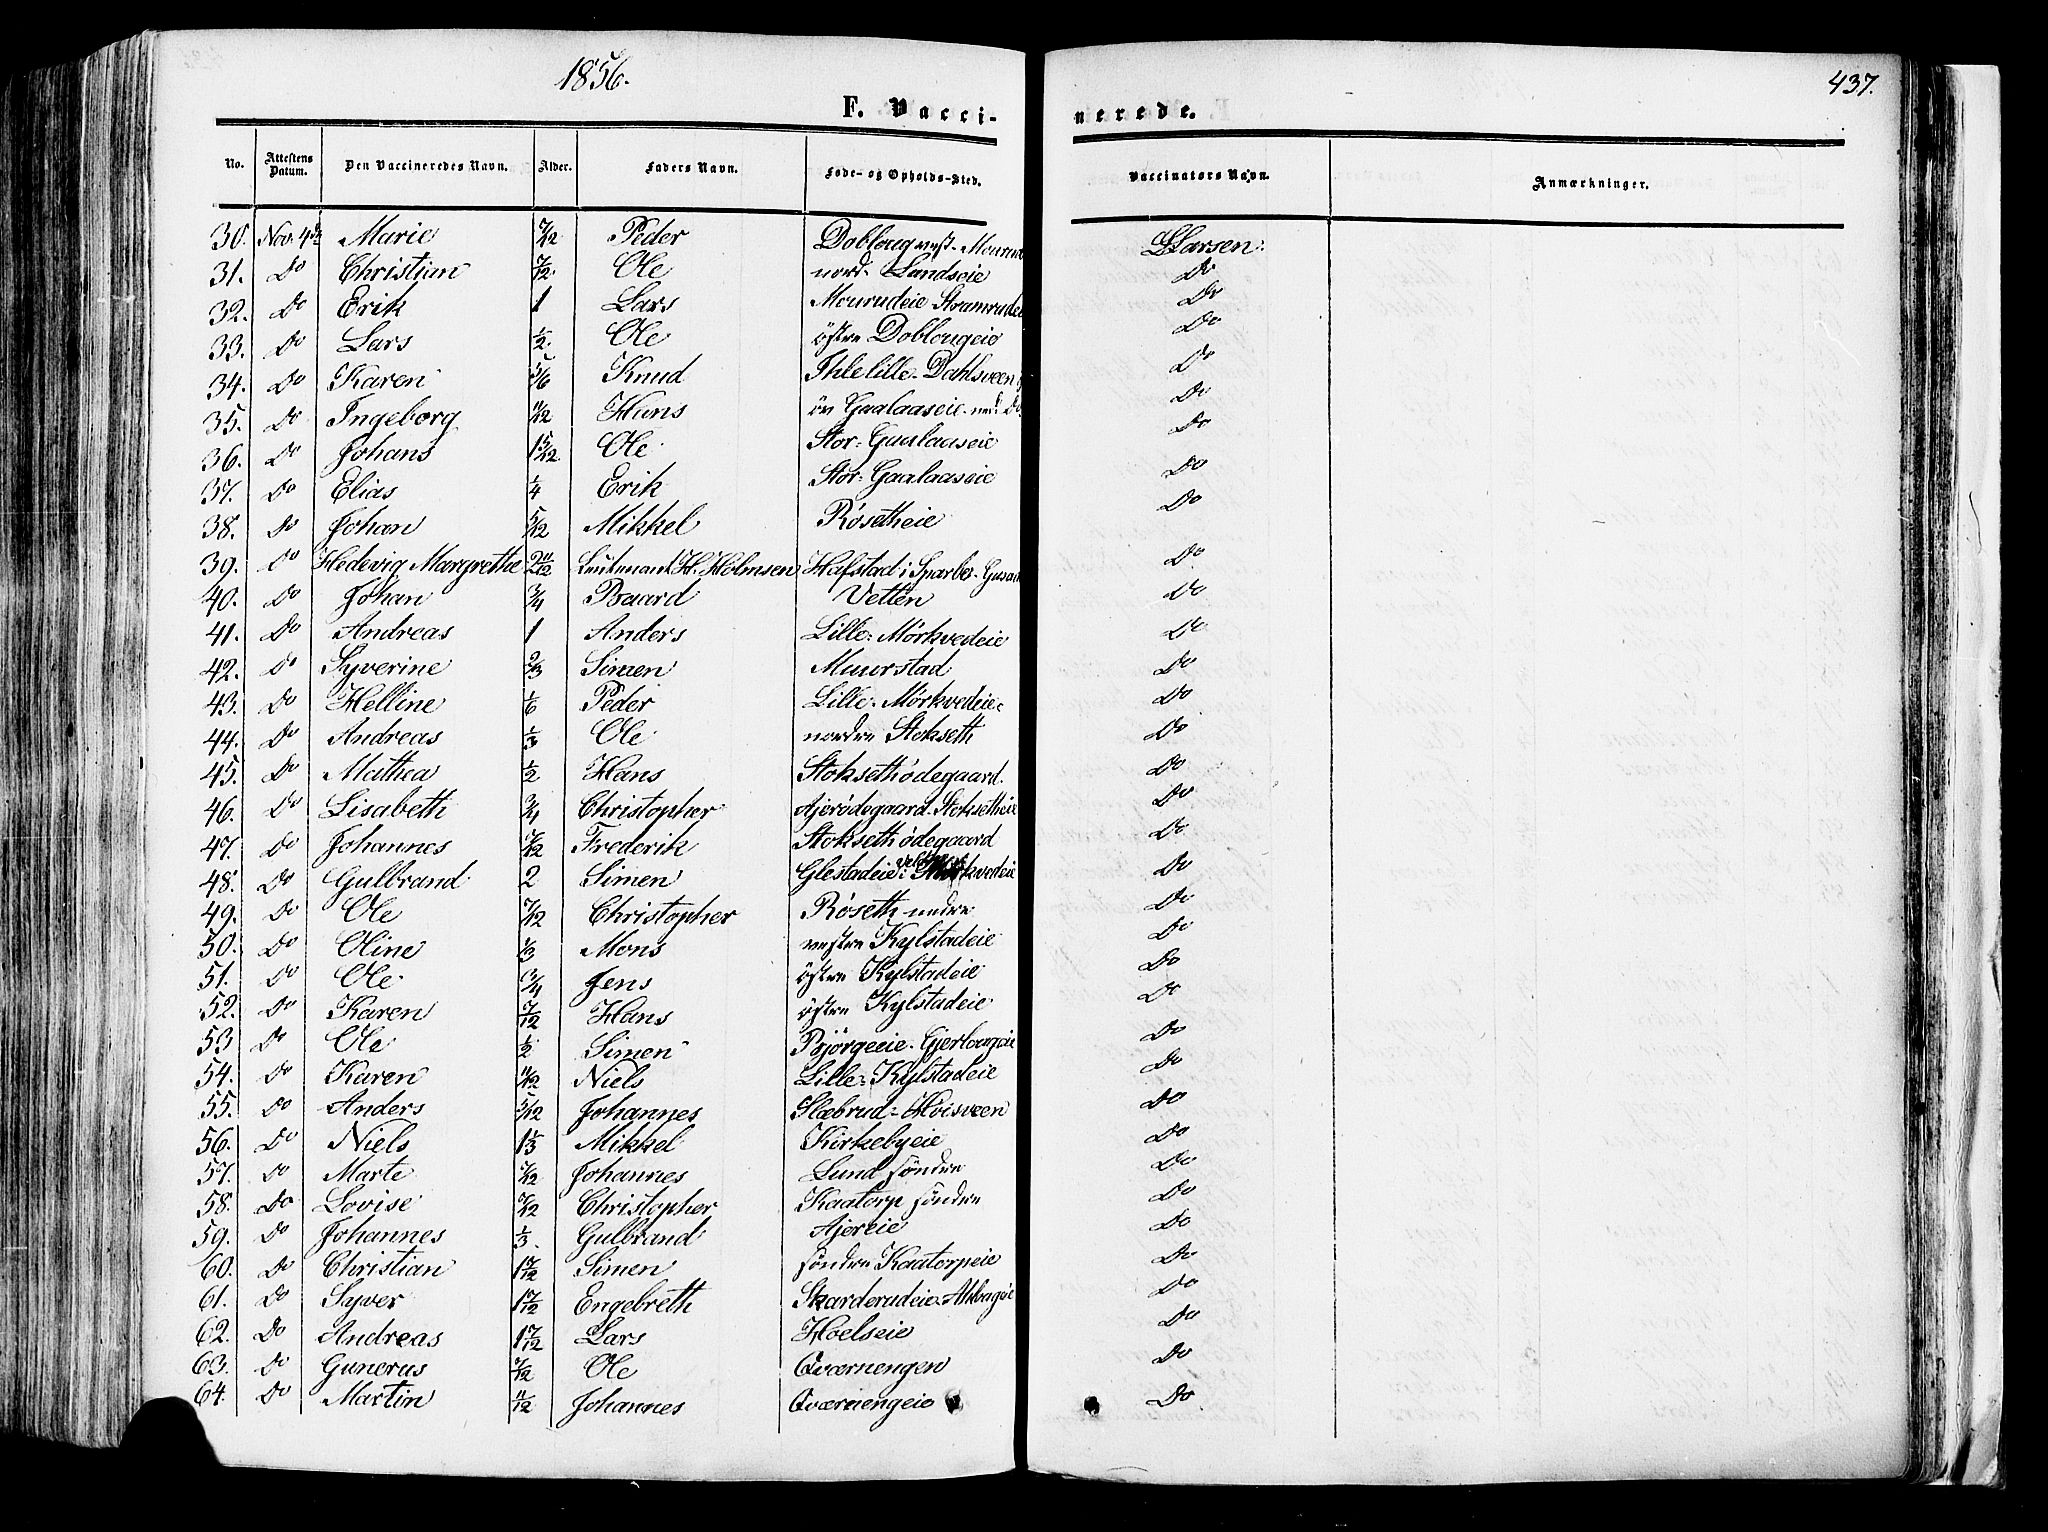 1856.
437.
F. Vacci-
nerede.
No. Attestens Datum. Den Vaccineredes Navn. Alder. Faders Navn. Føde- og Opholds-Sted. Vaccinators Navn. Anmærkninger.
30. Nov. 4de Marie 7/12 Peder Dobloug vest- L Larsen:
31. Do Christian 7/12. Ole nord- Landseie Do
32. Do Erik 1 Lars Mourudeie Stramrudeie Do
33. Do Lars 1/2. Ole östre Doblougeie Do
34. Do Karen 5/6 Knud Ihlelille- Dahlsveen Do
35. Do Ingeborg 11/12 Hans Gaalaaseie Do
36. Do Johans 1 5/12. Ole Stor: Gaalaaseie Do
37. Do Elias 1/4 Erik Stor: Gaalaaseie Do
38. Do Johan 5/12 Mikkel Rösetheie Do
39. Do Hedevig Margrethe 2 11/12 Leutenant H. Holmsen Hafstad i Sparbo- Do
40. Do Johan 3/4 Baard Vetten Do
41. Do Andreas 1 Anders Lille: Mörkvedeie Do
42. Do Syverine 2/3 Simen Muurstad Do
43. Do Helline 1/6 Peder Lille: Mörkvedeie Do
44. Do Andreas 1/3 Ole nordre Stokseth Do
45. Do Mathea 1/2 Hans Stoksethödegaard. Do
46. Do Lisabeth 3/4 Christopher Ajerödegaard. Stoksetheie Do
47. Do Johannes 7/12 Frederik Stoksethödegaard Do
48. Do Gulbrand 2 Simen Glestadeie: Mörkvedeie Do
49. Do Ole 7/12 Christopher Röseth nedre Do
50. Do Oline 1/3 Mons vestre Kylstadeie Do
51. Do Ole 3/4 Jens östre Kylstadeie Do
52. Do Karen 7/12 Hans östre Kylstadeie Do
53 Do Ole 1/2 Simen Bjørgeeie- Gjerlougeie Do
54. Do Karen 11/12 Niels Lille: Kylstadeie Do
55. Do Anders 5/12 Johannes Slæbrud- Hoisveen Do
56. Do Niels 1 1/3 Mikkel Kirkebyeie Do
57. Do Marte 7/12 Johannes Lund söndre Do
58. Do Lovise 7/12 Christopher Kaatorp söndre Do
59. Do Johannes 1/3. Gulbrand Ajereie Do
60. Do Christian 1 7/12 Simen söndre Kaatorpeie Do
61. Do Syver 1 7/12 Engebreth Skarderudeie- Do
62. Do Andreas 1 7/12 Lars Hoelseie Do
63. Do Gunerus 7/12 Ole Qværnengen Do
64. Do Martin 11/12 Johannes Qværnengeie Do